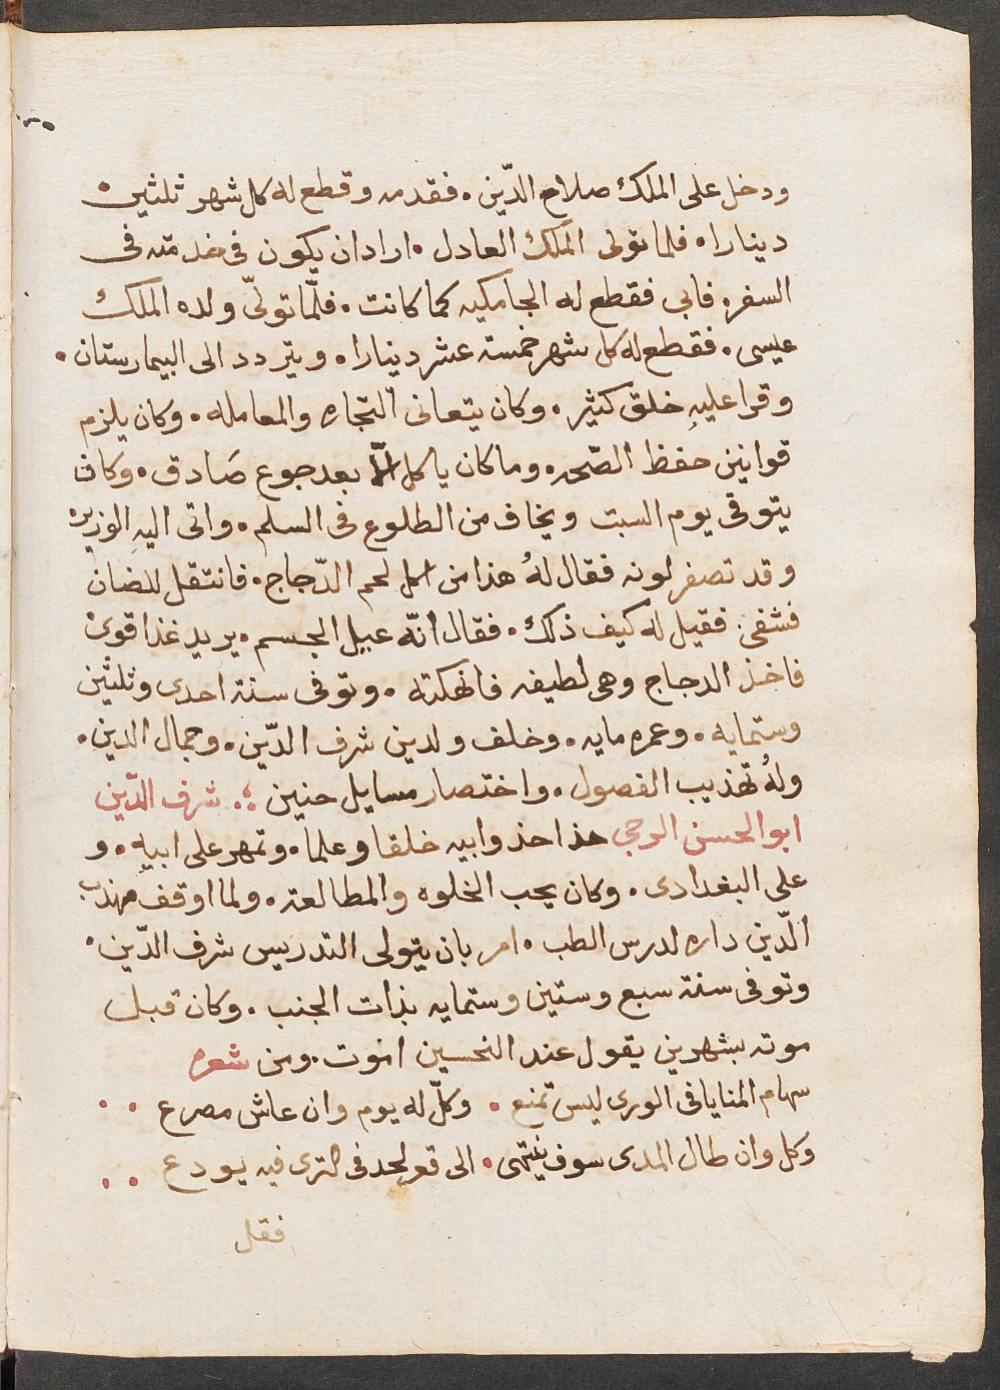 ودخل على الملك صلاح الدّين . فقدمه وقطع له كل شهر ثلثين
دينارا . فلما تولى الملك العادل . اراد ان يكون فى خدمته فى
السفر . فابى فقطع له الجامكيه كما كانت . فلّما تولّى ولده الملك
عيسى . فقطع له كل شهر خمسة عشر دينارا . ويتردد الى البيمارستان .
وقرا عليهِ خلق كثير . وكان يتعانى التجاره والمعامله . وكان يلزم
قوانين حفظ الصّحه . وما كان ياكل الّا بعد جوع صَادق . وكان
يتوقى يوم السبت ويخاف من الطلوع فى السلم . واتى اليهِ الوزير
وقد تصفر لونه فقال لهُ هذا من اكل لحم الدّجاج . فانتقل للضان
فشفى . فقيل له كيف ذلك . فقال انّه عبيل الجسم . يريد غذا قوى
فاخذ الدجاج وهى لطيفه فانهكته . وتوفى سنة احدى وثلثين
وستمايه . وعمره مايه . وخلف ولدين شرف الدّين . وجمال الدين .
ولهُ تهذيب الفصول . واختصار مسايل حنين شرف الدّين
ابو الحسن الرحبي حذا حذو ابيه خلقا وعلما . وتمهر على ابيهِ . و
على البغدادى . وكان يحب الخلوه والمطالعة . ولما اوقف مهذب
الدّين داره لدرس الطب . امر بان يتولى التدريس شرف الدّين .
وتوفى سنة سبع وستين وستمايه بذات الجنب . وكان قبل
موته بشهرين يقول عند النحسين اموت . ومن شعره
سهام المنايا فى الورى ليس تمنع . وكلّ له يوم وان عاش مصرع . .
وكل وان طال المدى سوف ينتهى . الى قعر لحد فى الثرى فيه يودع . .
فقل